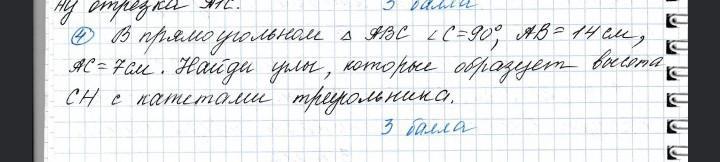 ну отрезка AC.
3 балла
④ В прямоугольном △ ABC ∠C=90°, AB=14см,
AC=7см. Найди углы, которые образует высота
CH с катетами треугольника.
3 балла